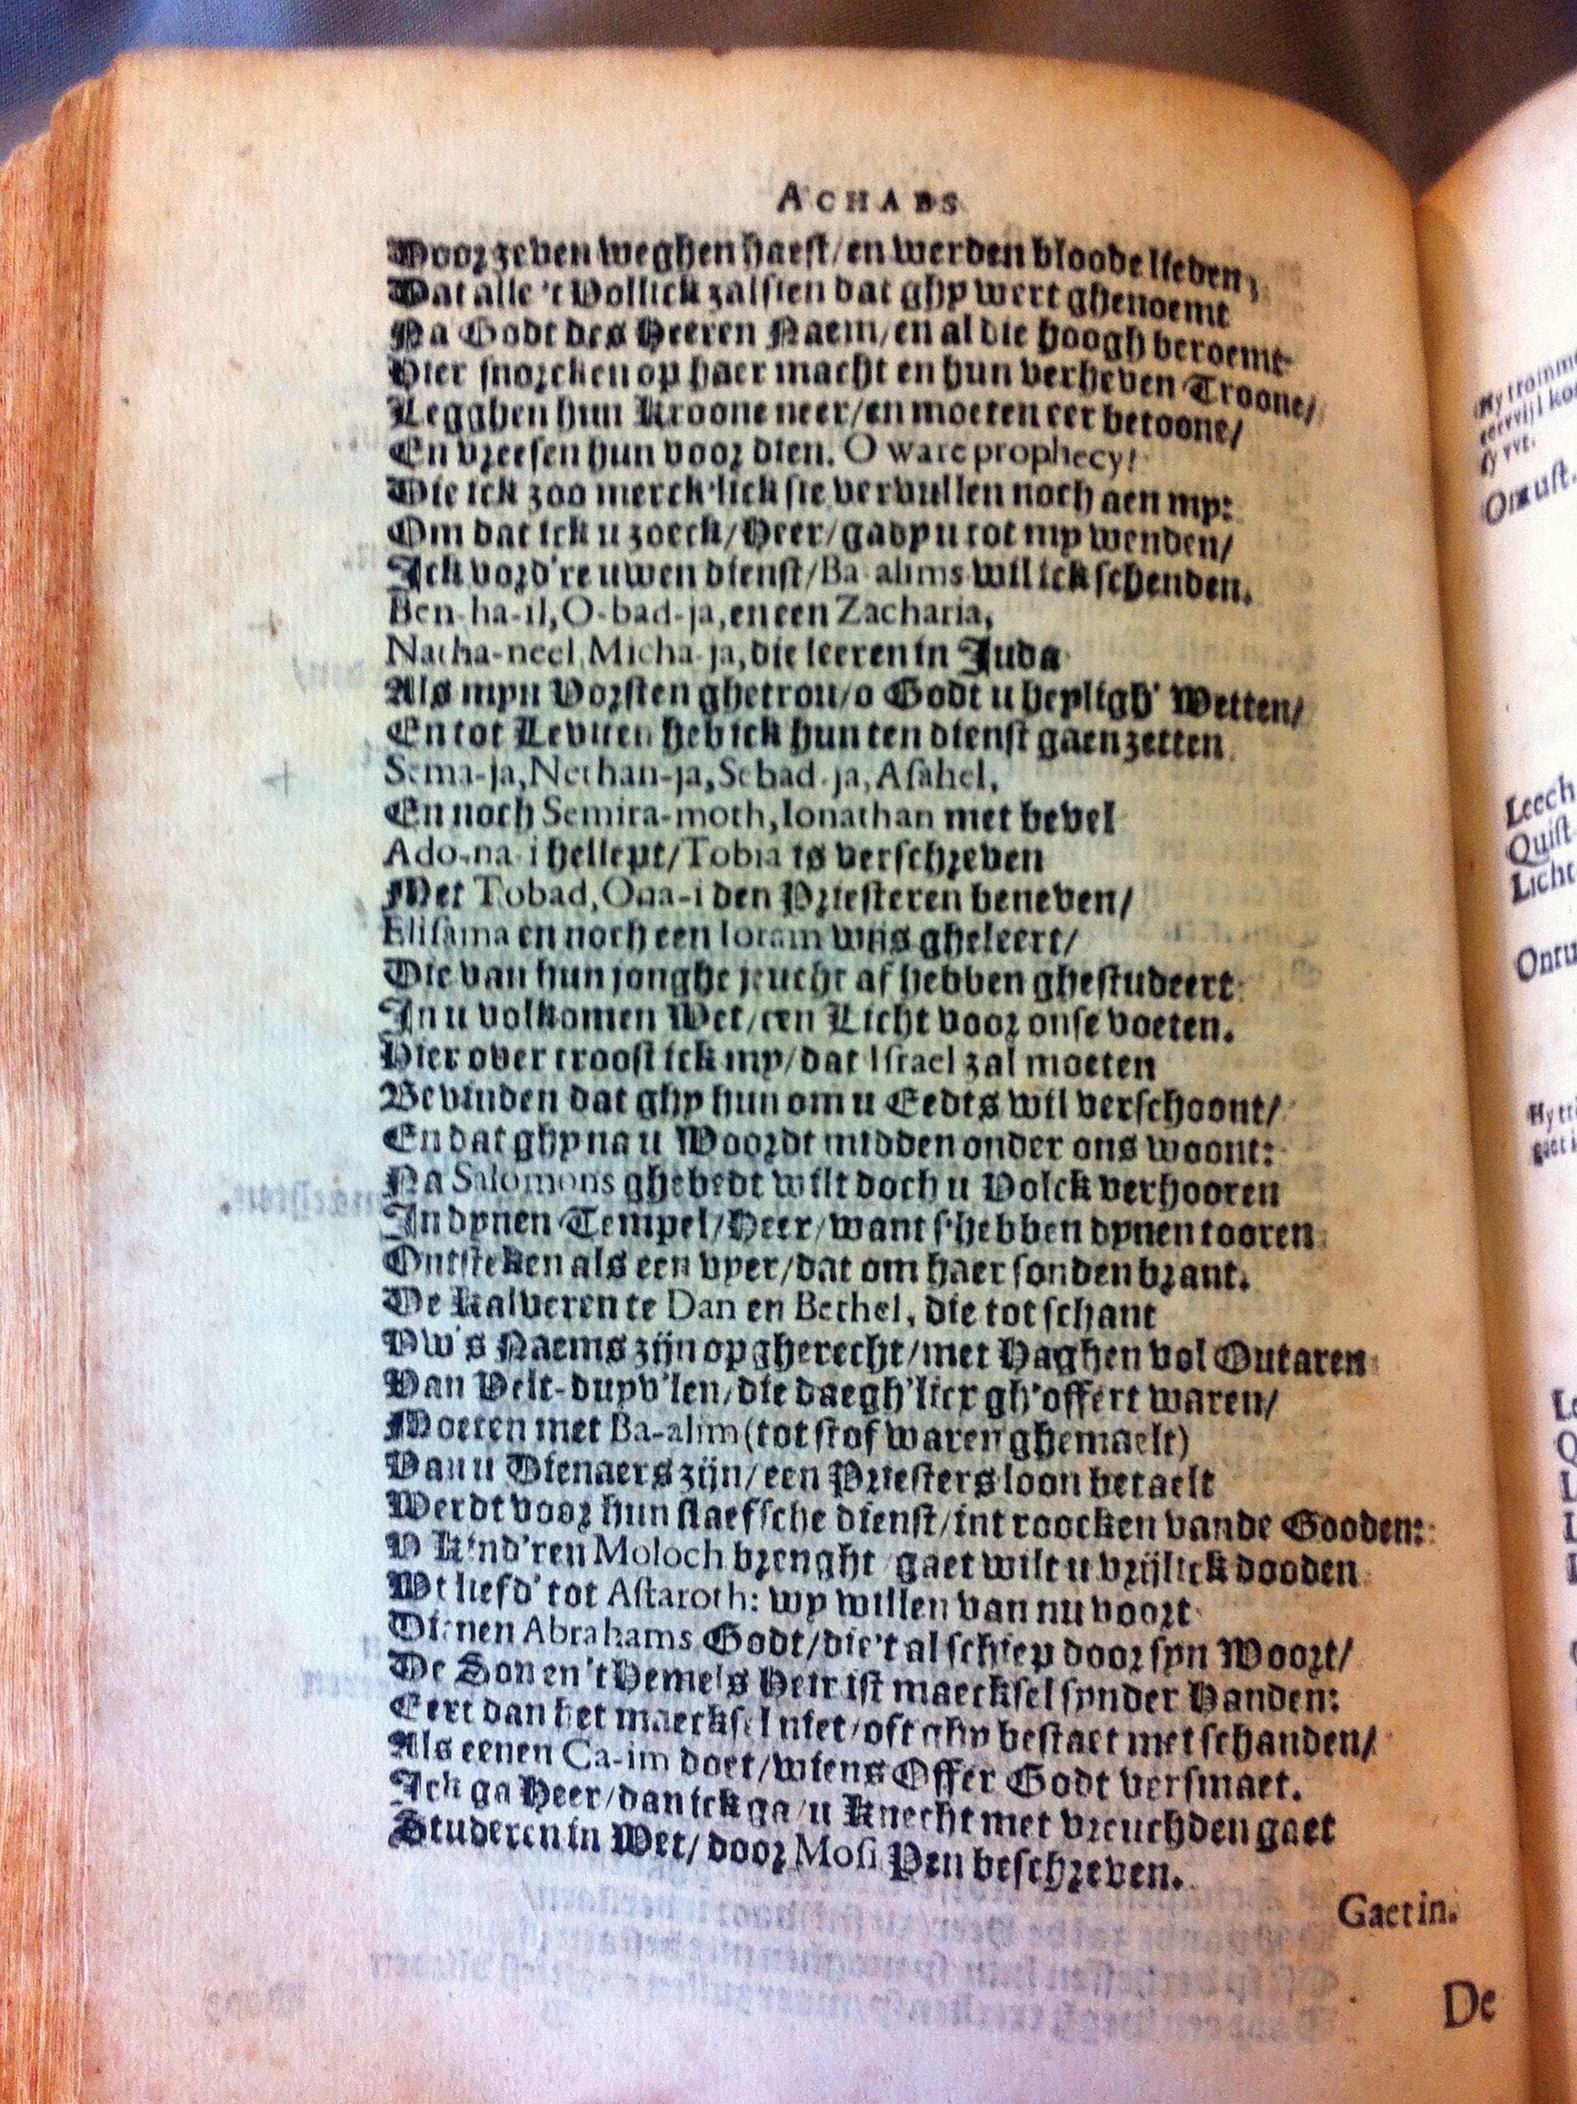 ACHABS
Door zeven weghen haest/ en werden bloode lieden,
Dat alle 't Vollick zal sien dat ghy wert ghenoemt
Na Godt des Heeren Naem/ en al die hoogh beroemt
Hier snorcken op haer macht en hun verheven Troone/
Legghen hun Kroone neer/ en moeten eer betoone/
En vreesen hun voor dien. O ware prophecy!
Die ick zoo merck'lick sie vervullen noch aen my:
Om dat ick u zoeck/ Heer/ gady u tot my wenden/
Ick vord're uwen dienst/ Ba-alims wil ick schenden.
Ben-ha-il, O-bad-ja, en een Zacharia,
Natha-neel, Micha-ja, die leeren in Juda
Als myn Vorsten ghetrou/ o Godt u heyligh' Wetten/
En tot Leviten heb ick hun ten dienst gaen zetten
Sema-ja, Nethan-ja, Sebad-ja, Asahel,
En noch Semira-moth, Ionathan met bevel
Ado-na-i hellept/ Tobia is verschreven
Met Tobad, Ona-i den Priesteren beneven/
Elisama en noch een Ioram wijs gheleert/
Die van hun jonghe jeucht af hebben ghestudeert
In u volkomen Wet/ een Licht voor onse voeten.
Hier over troost ick my/ dat Israel zal moeten
Bevinden dat ghy hun om u Eedts wil verschoont/
En dat ghy na u Woordt midden onder ons woont:
Na Salomons ghebedt wilt doch u Volck verhooren
In dynen Tempel/ Heer/ want s'hebben dynen tooren
Ontsteken als een vyer/ dat om haer sonden brant.
De Kalveren te Dan en Bethel, die tot schant
Vw's Naems zijn opgherecht/ met Haghen vol Outaren
Van Velt-duyv'len/ die daegh'licx gh'offert waren/
Moeten met Ba-alim (tot stof waren ghemaelt)
Van u Dienaers zijn/ een Priesters loon betaelt
Werdt voor hun slaefsche dienst/ int roocken vande Gooden:
V kind'ren Moloch brenght gaet wilt u vrijlick dooden
Wt liefd' tot Astaroth: wy willen van nu voort
Dienen Abrahams Godt/ die 't al schiep door syn Woort/
De Son en 't Hemels Heir ist maecksel synder Handen:
Eert dan het maecksel niet/ oft ghy bestaet met schanden/
Als eenen Ca-im doet/ wiens Offer Godt versmaet.
Ick ga Heer/ dan ick ga/ u Knecht met vreuchden gaet
Studeren in Wet/ door Mosi Pen beschreven.
Gaet in.
De
Hy tromm
vvt.
Omust.
Leech
Quist
Licht
Ontu